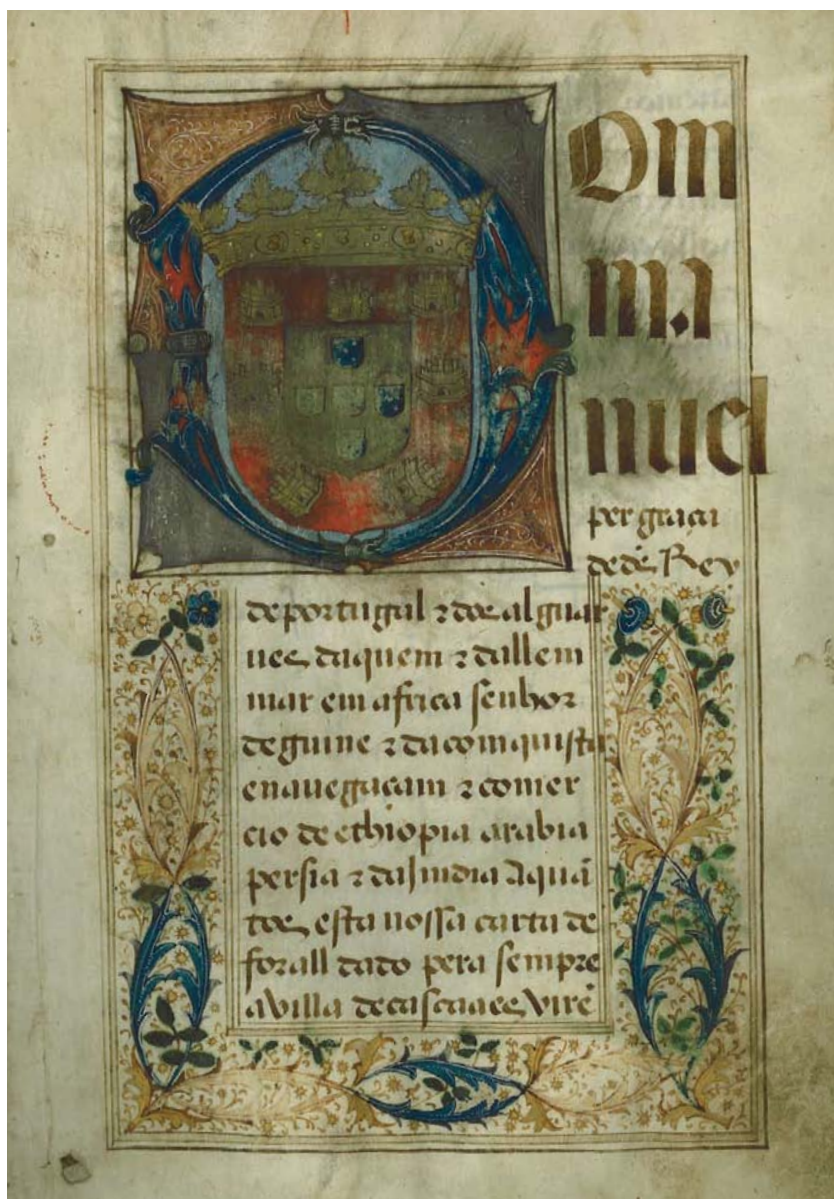 Dom
ma
nuel
per graça
de ds̃ Rey
de portugal ⁊ dos alguar
ues daquem ⁊ dallem
mar em africa senhor
de guine ⁊ da comquista
e nauegaçam ⁊ comer
cio de ethiopia arabia
persia ⁊ da Jndia A quã
tos esta nossa carta de
forall dado pera sempre
a villa de cascaaes virẽ